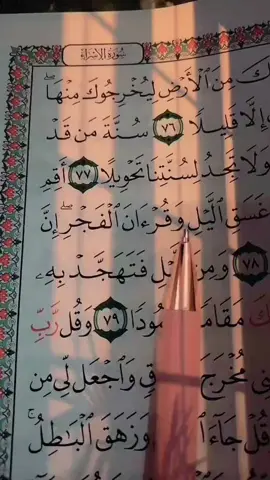 سُورَةُ الإِسْرَاءِ
مِنَ ٱلْأَرْضِ لِيُخْرِجُوكَ مِنْهَا ۖ
إِلَّا قَلِيلًا ٧٦ سُنَّةَ مَن قَدْ
وَلَا تَجِدُ لِسُنَّتِنَا تَحْوِيلًا ٧٧ أَقِمِ
غَسَقِ ٱلَّيْلِ وَقُرْءَانَ ٱلْفَجْرِ ۖ إِنَّ
٧٨ وَمِنَ فَتَهَجَّدْ بِهِۦ
٧٩ وَقُل رَّبِّ
مُخْرَجَ وَٱجْعَل لِّي مِن
وَقُلْ جَآءَ وَزَهَقَ ٱلْبَـٰطِلُ ۚ